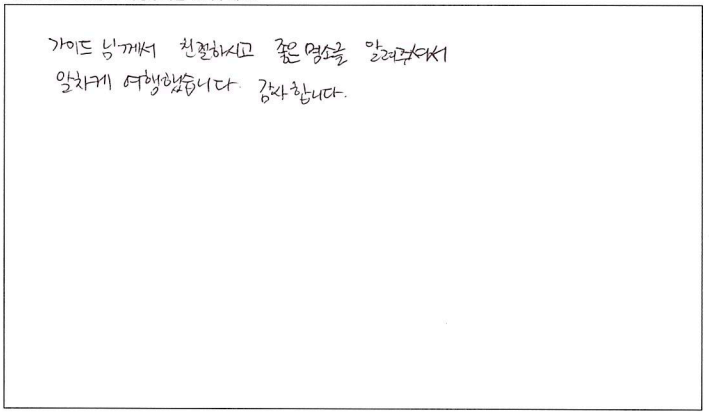 가이드 님께서 친절하시고 좋은 명소를 알려주셔서
알차게 여행했습니다. 감사합니다.